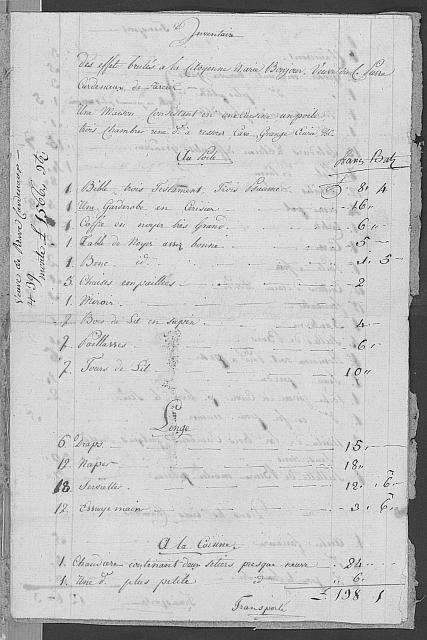 Inventaire
des effet brulés a la Citoyenne Marie Bonjour, Veuve du C. Pierre
Cardenaux, de
Une Maison Consistant en une Cuisine un poile
trois Chambre une de reserve Cave, Grange &c
Au Poile francs Batz
1. Bible, trois Testament, Trois Psaume 8 4
1 Une Garderobe en Cerisier 16 "
1 Coffre en noyer très Grand 6 "
1. Table de Noyer assez bonne 5 -
1. Banc id 1. 5 -
3. Chaises empaillées 2
1. Meroir
2 Bois de Lit en sapin 4 -
2. Paillasses 6 "
2. Tours de Lit 10 "
Linge
6 Draps 15 "
12 Napes 18 "
18 Serviettes 12 " 6
12 Essuye main 3 6
A la Cuisine
1. Chaudiere contenant deux setiers presque neuve 24 "
1. Une d° plus petite id " 6
£ 198 1
Transporté
Veuve de Pierre Cardenaux